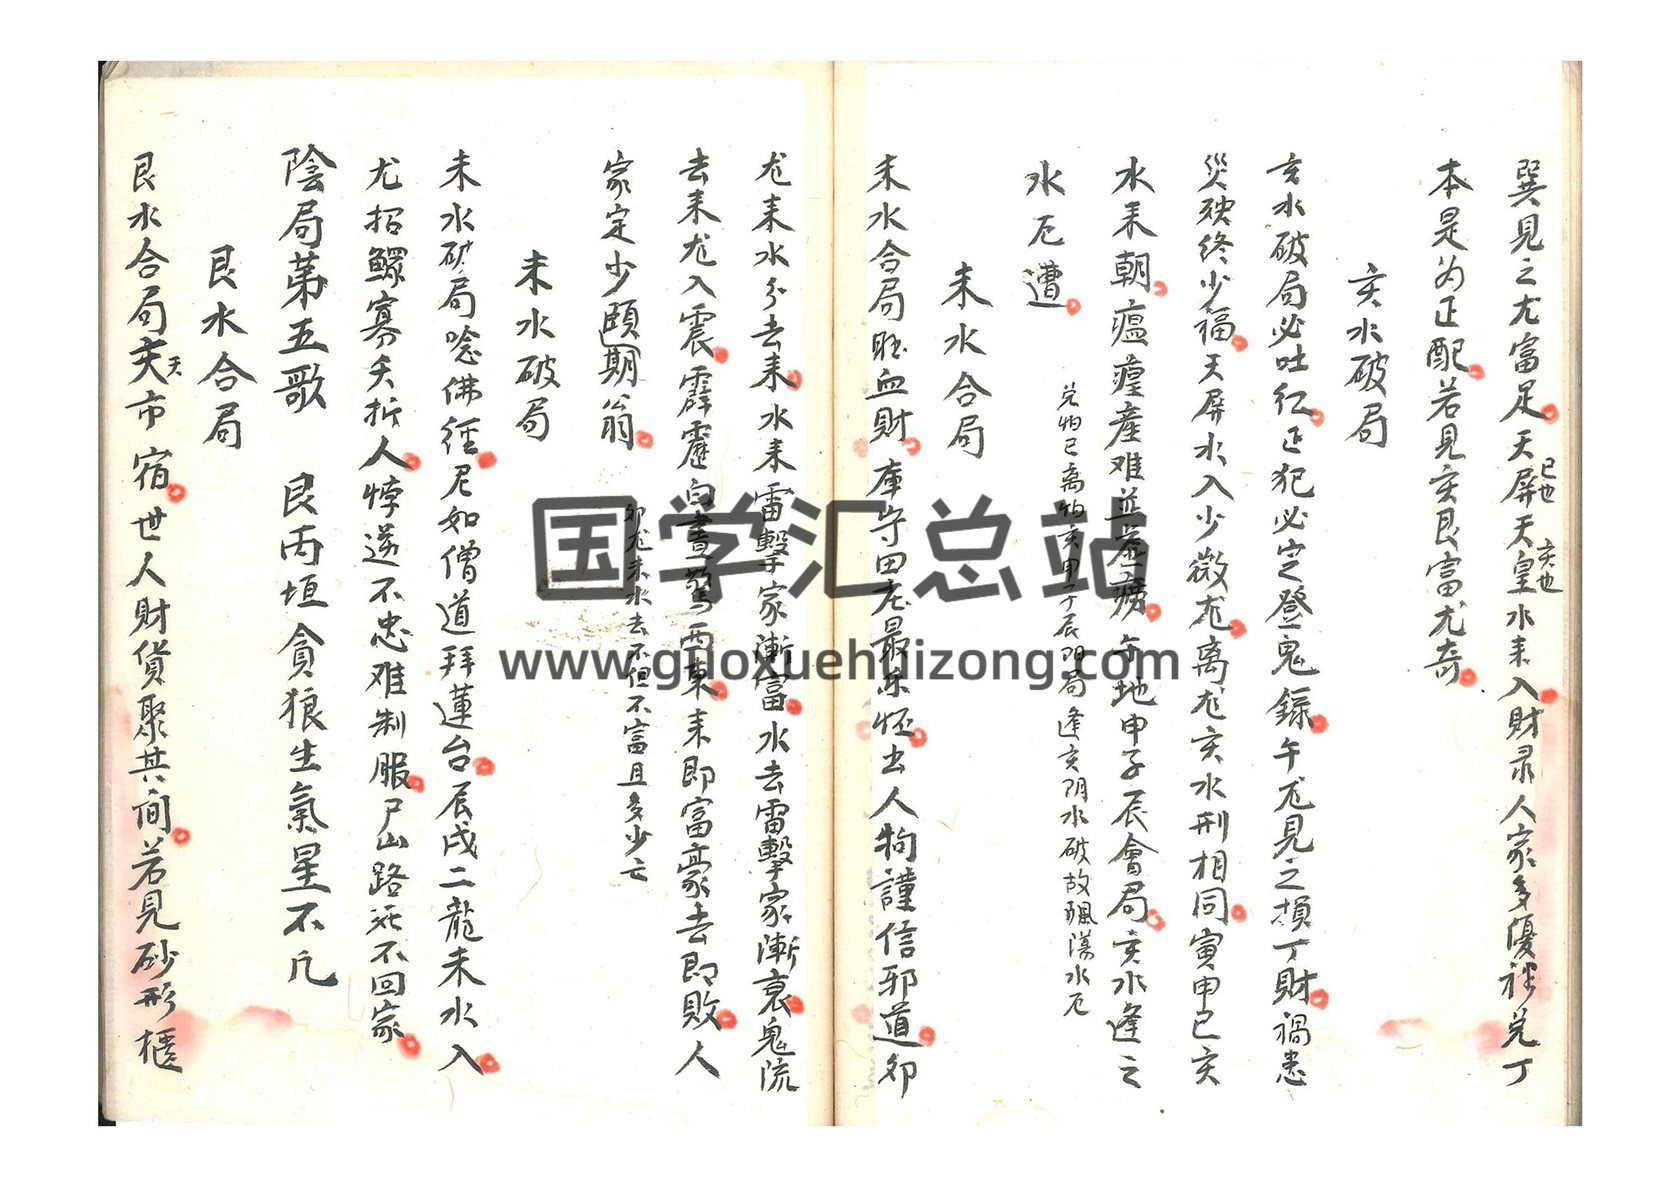 巽見之尤富足天屏巳也天皇亥也水来入財录人家多優裕兑丁
本是为正配若見亥艮富尤奇
亥水破局
亥水破局必吐红正犯必定登鬼錄午龙見之損丁財禍患
災殃终少福天屏水入少微龙离龙亥水刑相同寅申巳亥
水来朝瘟㾮産难並 痨午地甲子辰會局亥水逢之
水厄遭 兑 巳离 亥甲子辰阳局逢亥阴水破故飄蕩水厄
未水合局
未水合局旺血財庫守田庄最乐怀出人拘謹信邪道卯
龙来水分去来水来雷擊家漸富水去雷擊家漸衰鬼流
去来龙入震霹靂白晝驚西東来即富豪去即敗人
家定少頤期翁 卯龙未水去不但不富且多少亡
未水破局
未水破局唸佛經尼姑僧道拜蓮台辰戌二龍未水入
尤招鰥寡夭折人悖逆不忠难制服尸山路死不回家
陰局第五歌 艮丙垣貪狼生氣星不凡
艮水合局
艮水合局天天市宿世人財貨聚其间若見砂形櫃
国学汇总站
www.guoxuehuizong.com